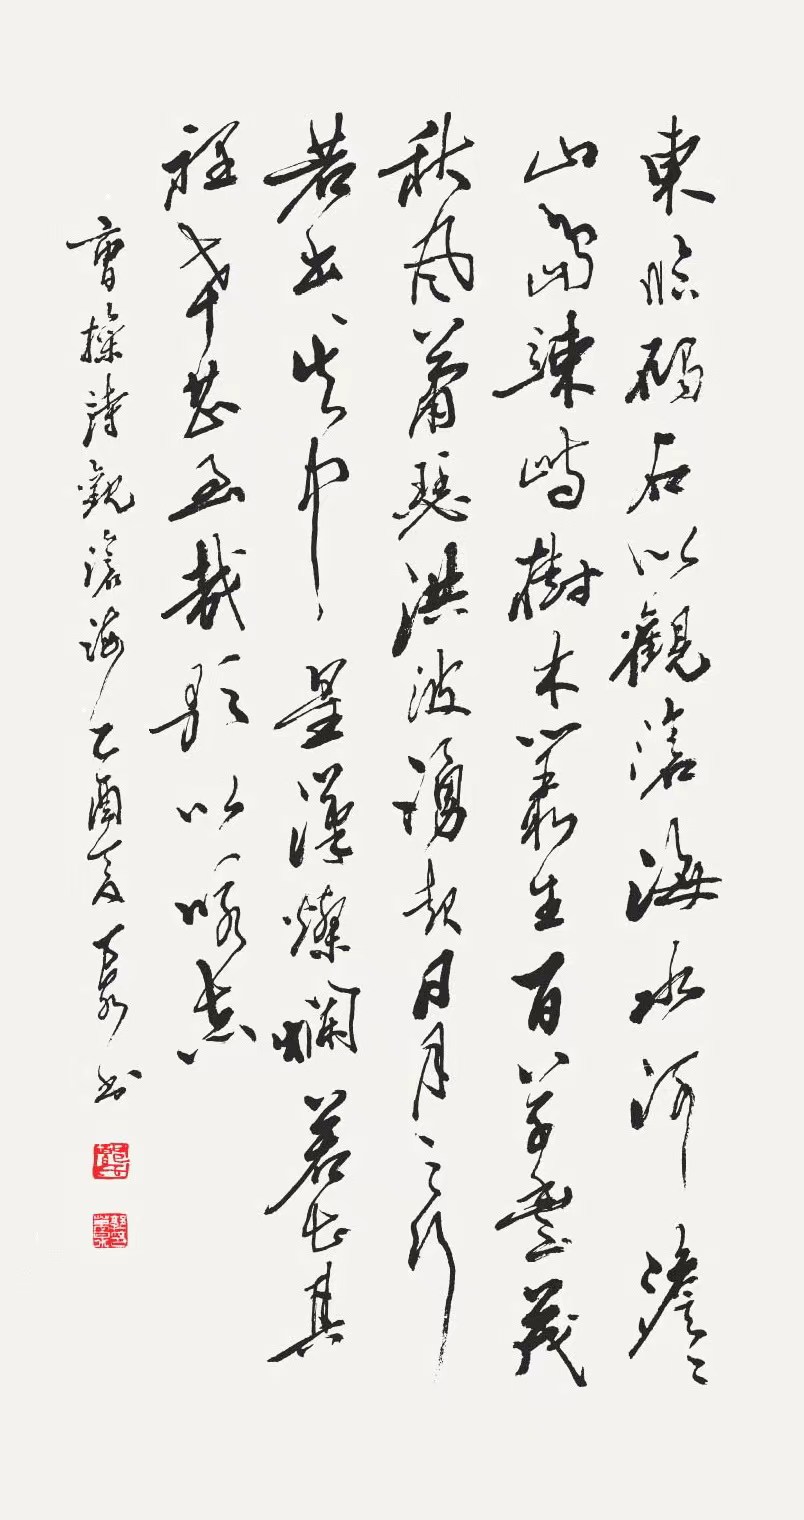 東臨碣石以觀滄海水何澹〻
山島竦峙樹木叢生百草豐茂
秋風蕭瑟洪波湧起日月之行
若出其中星漢燦爛若出其
裡幸甚至哉歌以咏志
曹操詩觀滄海乙酉夏書